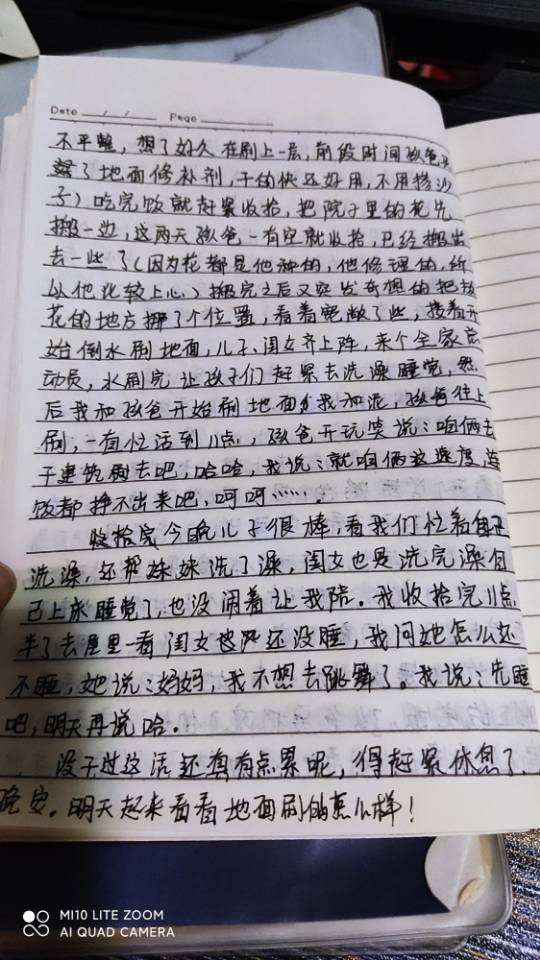 Date / / Page
不平整，想了好久在刷上一层，前段时间孩爸
了地面修补剂，干的快还好用，不用掺沙
子）吃完饭就赶紧收拾，把院子里的花先
搬一边，这两天孩爸一有空就收拾，已经搬出
去一些了（因为花都是他种的，他修理的，所
以他比较上心）搬完之后又突发奇想的把放
花的地方挪了个位置，看着宽敞了些，接着开
始倒水刷地面，儿子，闺女齐上阵，来个全家总
动员，水刷完让孩子们赶紧去洗澡睡觉，然
后我和孩爸开始刷地面，我和泥，孩爸往上
刷，一直忙活到11点，孩爸开玩笑说：咱俩去
干建筑刷去吧，哈哈，我说：就咱俩这速度，连
饭都挣不出来吧，呵呵……。
收拾完今晚儿子很棒，看我们忙着自己
洗澡，还帮妹妹洗了澡，闺女也是洗完澡自
己上床睡觉了，也没闹着让我陪。我收拾完11点
半了去屋里一看闺女还没睡，我问她怎么还
不睡，她说：妈妈，我不想去跳舞了。我说：先睡
吧，明天再说哈。
没干过这活还真有点累呢，得赶紧休息了，
晚安。明天起来看看地面刷的怎么样！
MI10 LITE ZOOM
AI QUAD CAMERA